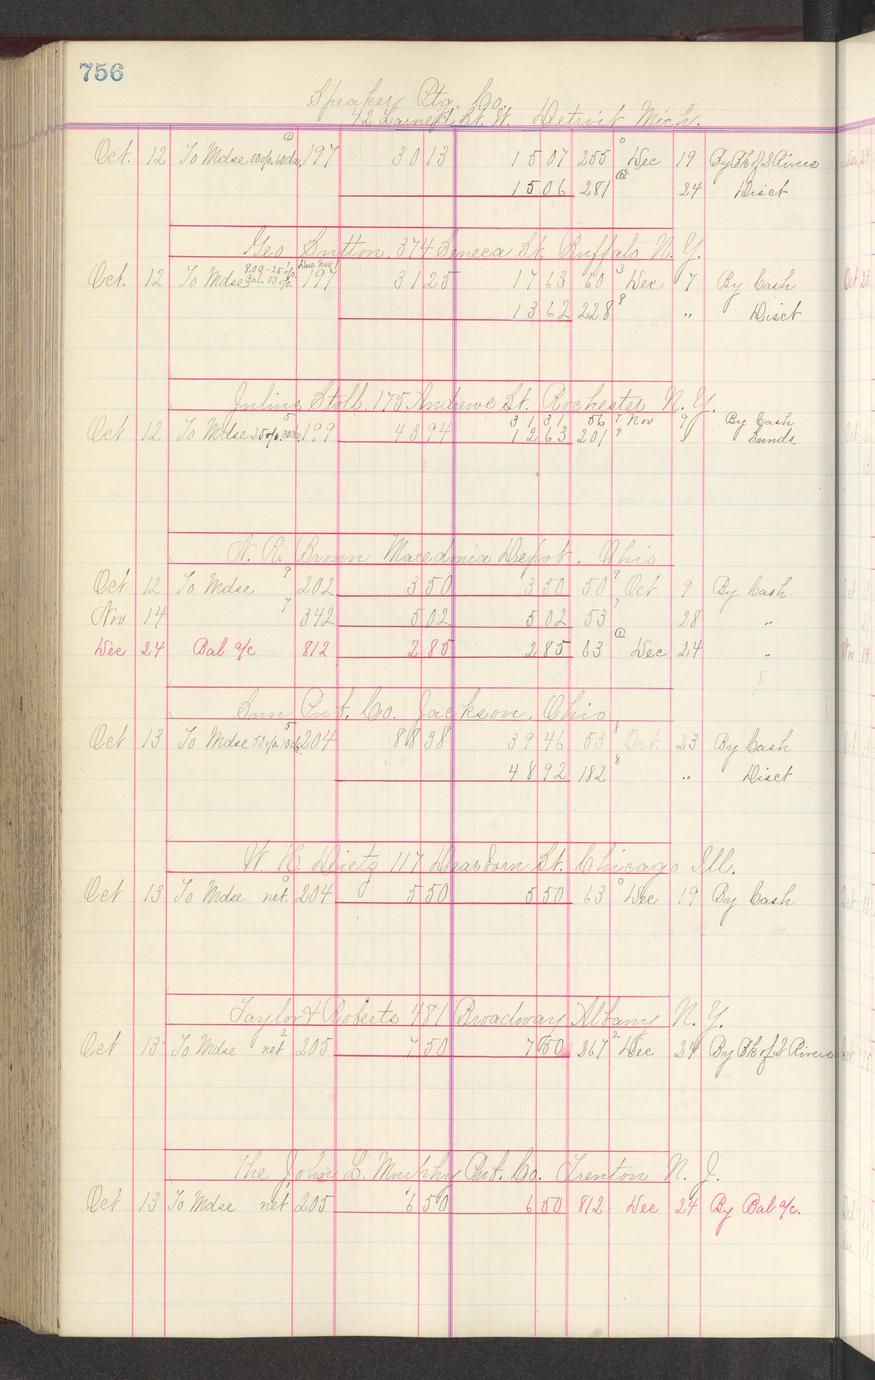 756
Speaker Ptg. Co.
42 Larned St. W. Detroit Mich.
Oct. 12 To Mdse 50% 60da. 197 30 13 15 07 255 Dec 19 By Bk of 3 Rivers
15 06 281 24 Disct
Geo Sutton, 374 Seneca St. Buffalo N.Y.
Oct. 12 To Mdse Bal. 50%. 197 31 25 17 63 60 Dec 7 By Cash
13 62 228 " Disct
Julius Stoll. 175 Andrews St. Rochester N.Y.
31 31 56 Nov 9 By Cash
Oct 12 To Mdse 25% 30da. 199 43 94 12 63 201 " Sunds
N. R. Brown Macedonia Depot. Ohio
Oct 12 To Mdse 202 3 50 3 50 50 Oct 9 By Cash.
Nov 14 342 5 02 5 02 53 28 "
Dec 24 Bal a/c 812 2 85 2 85 63 Dec 24 "
Sun Pub. Co. Jackson, Ohio
Oct 13 To Mdse 50% 10da. 204 88 38 39 46 53 Oct. 23 By Cash
48 92 182 " Disct
W. H. Dietz 117 Dearborn St. Chicago Ill.
Oct 13 To Mdse net. 204 5 50 5 50 63 Dec 19 By Cash
Taylor & Roberts 481 Broadway Albany N.Y.
Oct 13 To Mdse net 205 7 50 7 50 267 Dec 24 By Bk of 3 Rivers
The John L. Murphy Pub. Co. Trenton N.J.
Oct 13 To Mdse net 205 6 50 6 50 812 Dec 24 By Bal a/c.